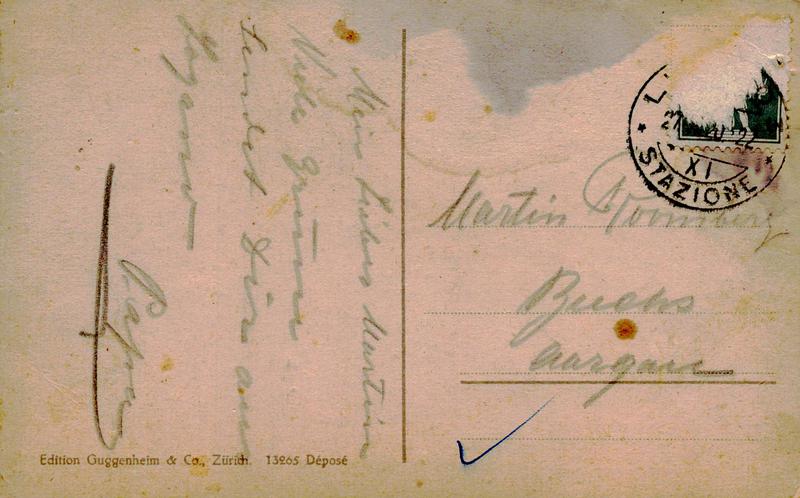 Mein Liebes Martin
Viele Grüsse
Sendet Dir aus
Lugano
Papa
Edition Guggenheim & Co., Zürich. 13265 Déposé
XI
STAZIONE
Martin
Buchs
Aargau